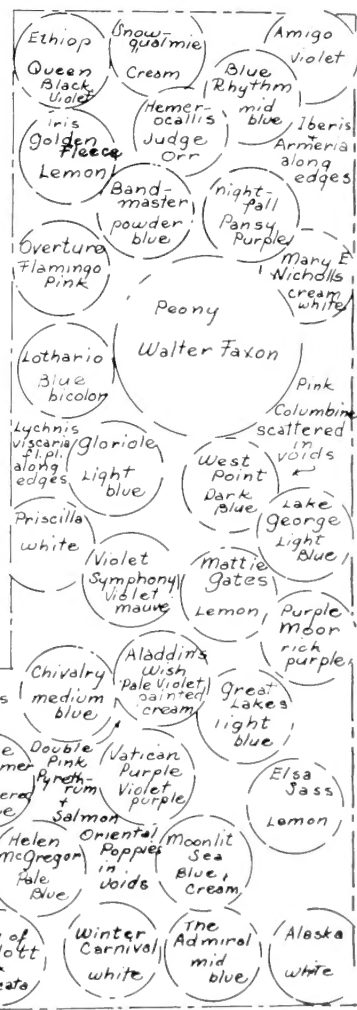 Ethiop
Queen
Black
Violet
Snow-
qualmie
Cream
Amigo
violet
Blue
Rhythm
mid
blue
Iris
Golden
Fleece
Lemon
Hemer-
ocallis
Judge
Orr
Iberis
+
Armeria
along
edges
Band-
master
powder
blue
night-
fall
Pansy
Purple
Overture
Flamingo
Pink
Mary E
Nicholls
cream
white
Peony
Walter Faxon
Lothario
Blue
bicolor
Pink
Columbine
scattered
in
voids
Lychnis
viscaria
fl.pl.
along
edges
Gloriole
Light
blue
West
Point
Dark
Blue
Lake
George
Light
Blue
Priscilla
white
Violet
Symphony
Violet
mauve
Mattie
Gates
Lemon
Purple
Moon
rich
purple
Chivalry
medium
blue
Aladdin's
Wish
Pale Violet
painted
cream
Great
Lakes
light
blue
Double
Pink
Pyreth-
rum
+
Salmon
Oriental
Poppies
in
voids
Vatican
Purple
Violet
purple
Elsa
Sass
Lemon
Helen
McGregor
Pale
Blue
Moonlit
Sea
Blue,
Cream
Winter
Carnival
white
The
Admiral
mid
blue
Alaska
white